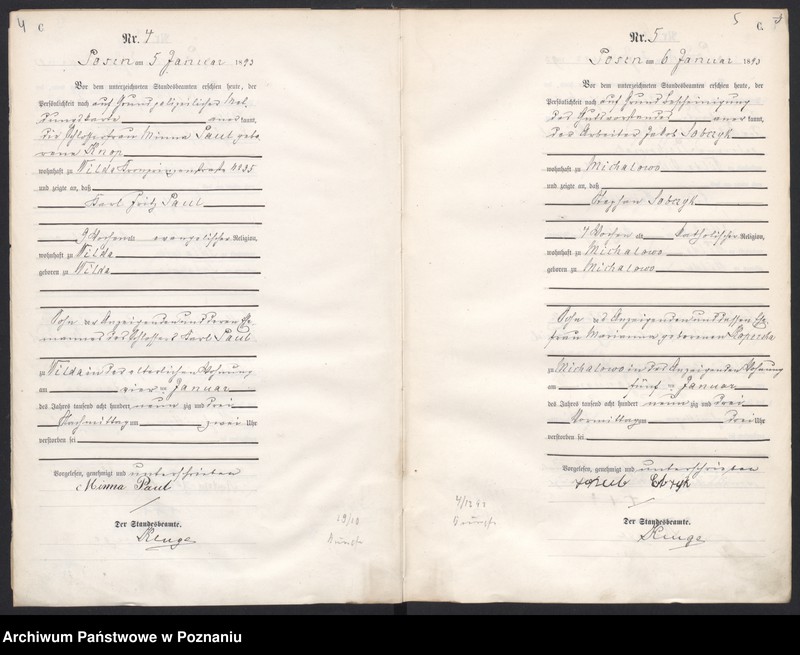 4 C.
Nr. 4
Posen am 5 Januar 1893
Vor dem unterzeichneten Standesbeamten erschien heute, der
Persönlichkeit nach auf Grund polizeilicher Mel-
dungskarte anerkannt,
die Schlosserfrau Minna Paul gebo-
rene Knop
wohnhaft zu Wilda Kronprinzenstraße № 35
und zeigte an, daß
Karl Fritz Paul
9 Wochen alt evangelischer Religion,
wohnhaft zu Wilda
geboren zu Wilda
Sohn der Anzeigenden und deren Ehe-
mannes des Schlossers Karl Paul
zu Wilda in der elterlichen Wohnung
am vier ten Januar
des Jahres tausend acht hundert neunzig und drei
Nachmittags um zwei Uhr
verstorben sei
Vorgelesen, genehmigt und unterschrieben
Minna Paul
Der Standesbeamte.
5 C.
Nr. 5
Posen am 6 Januar 1893
Vor dem unterzeichneten Standesbeamten erschien heute, der
Persönlichkeit nach auf Grund Bescheinigung
des Gutsvorstandes anerkannt,
der Arbeiter Jakob
wohnhaft zu Michalowo
und zeigte an, daß
Stephan
7 Wochen alt katholischer Religion,
wohnhaft zu Michalowo
geboren zu Michalowo
Sohn des Anzeigenden und dessen Ehe-
frau Marianna geborenen
zu Michalowo in des Anzeigenden Wohnung
am fünf ten Januar
des Jahres tausend acht hundert neunzig und drei
Vormittags um drei Uhr
verstorben sei
Vorgelesen, genehmigt und unterschrieben
Der Standesbeamte.
Archiwum Państwowe w Poznaniu